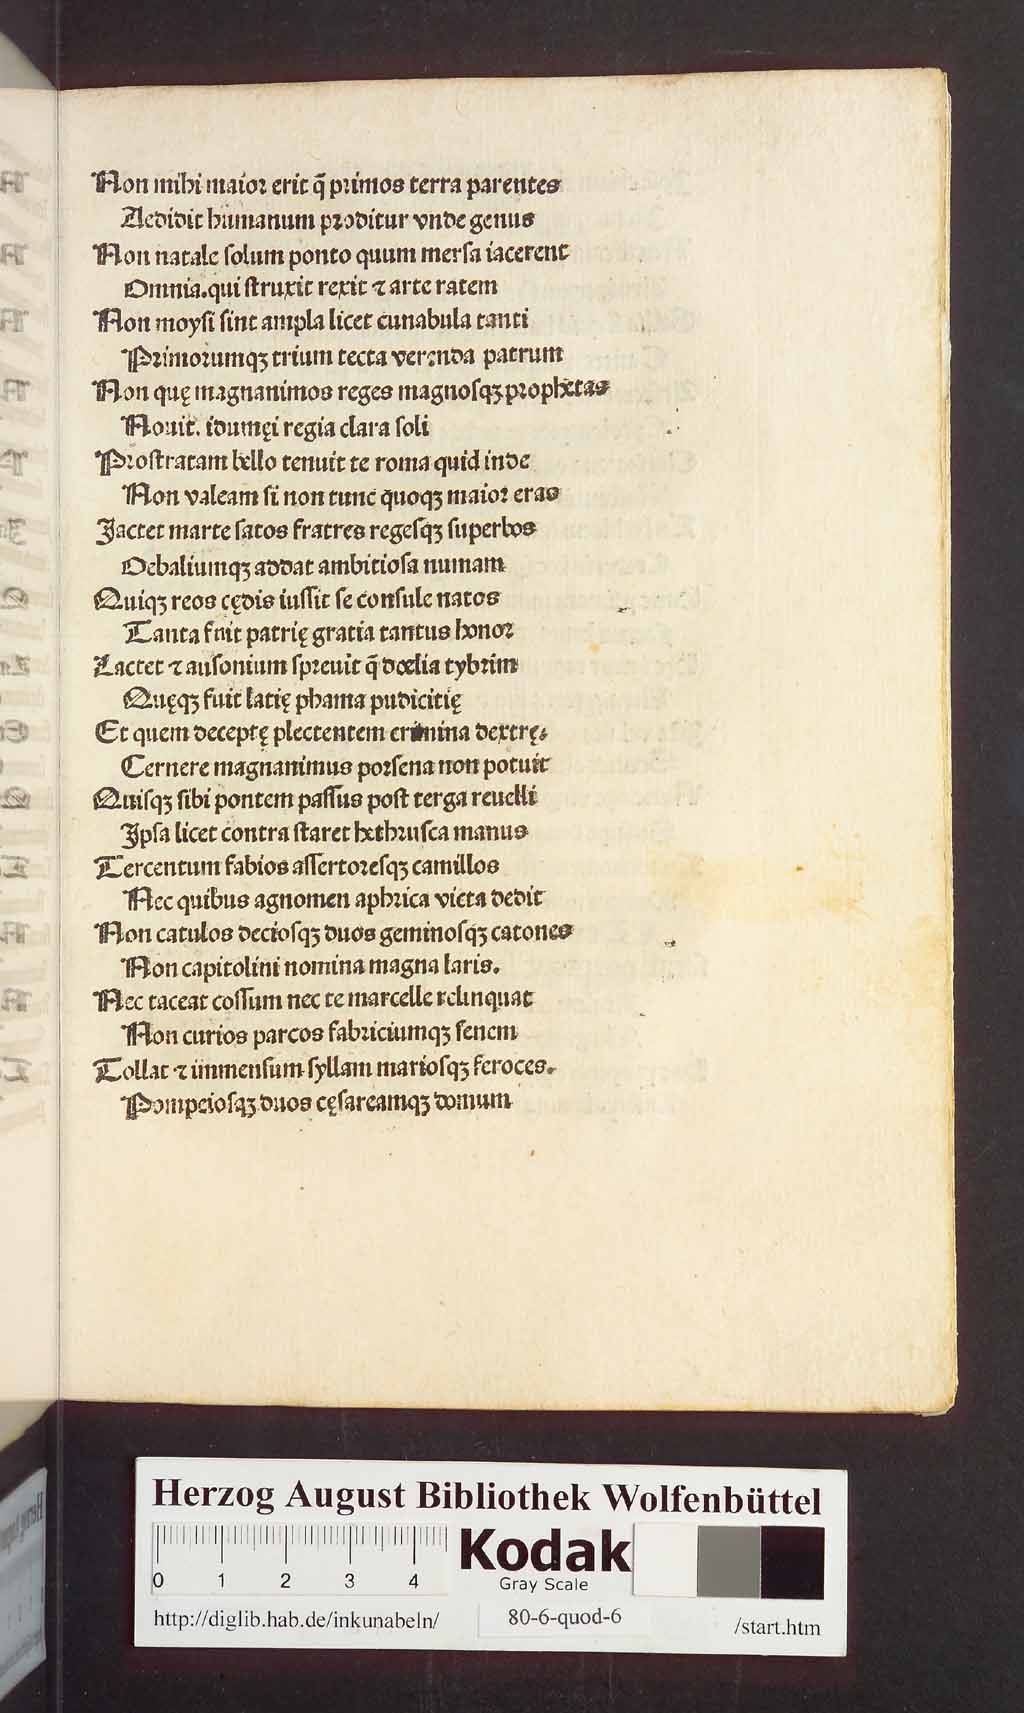 Non mihi maior erit q̄ primos terra parentes
Aedidit humanum proditur vnde genus
Non natale solum ponto quum mersa iacerent
Omnia.qui struxit rexit ⁊ arte ratem
Non moysi sint ampla licet cunabula tanti
Primorumqꝫ trium tecta verenda patrum
Non quę magnanimos reges magnosqꝫ prophetas
Nouit. idumęi regia clara soli
Prostratam bello tenuit te roma quid inde
Non valeam si non tunc quoqꝫ maior eras
Jactet marte satos fratres regesqꝫ superbos
Oebaliumqꝫ addat ambitiosa numam
Quiqꝫ reos cędis iussit se consule natos
Tanta fuit patrię gratia tantus honor
Lactet ⁊ ausonium spreuit q̄ doelia tybrim
Quęqꝫ fuit latię phama pudicitię
Et quem deceptę plectentem crimina dextrę.
Cernere magnanimus porsena non potuit
Quisqꝫ sibi pontem passus post terga reuelli
Jpsa licet contra staret hethrusca manus
Tercentum fabios assertoresqꝫ camillos
Nec quibus agnomen aphrica victa dedit
Non catulos deciosqꝫ duos geminosqꝫ catones
Non capitolini nomina magna laris.
Nec taceat cossum nec te marcelle relinquat
Non curios parcos fabriciumqꝫ senem
Tollat ⁊ immensum syllam mariosqꝫ feroces.
Pompeiosqꝫ duos cęsareamqꝫ domum
Herzog August Bibliothek Wolfenbüttel
0 1 2 3 4
Kodak
Gray Scale
http://diglib.hab.de/inkunabeln/ 80-6-quod-6 /start.htm